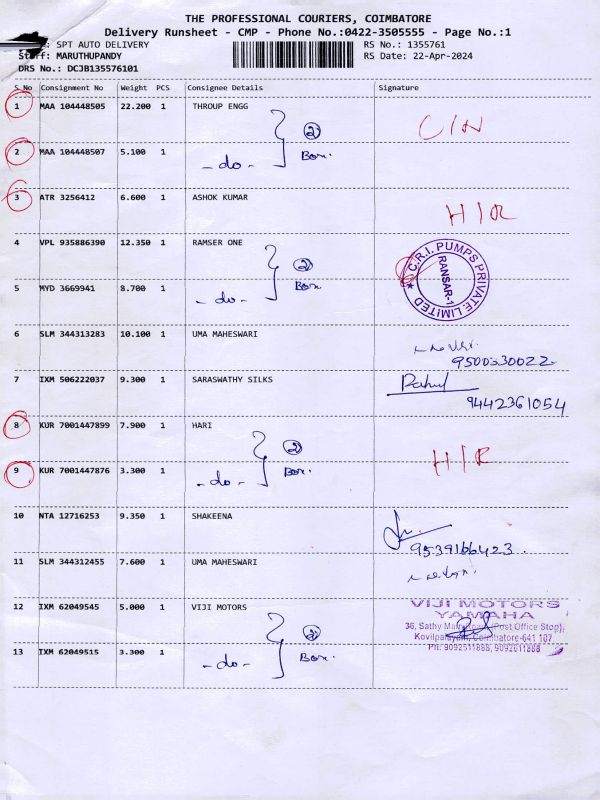 THE PROFESSIONAL COURIERS, COIMBATORE
Delivery Runsheet - CMP - Phone No.:0422-3505555 - Page No.:1
: SPT AUTO DELIVERY RS No.: 1355761
Staff: MARUTHUPANDY RS Date: 22-Apr-2024
DRS No.: DCJB135576101
S No Consignment No Weight PCS Consignee Details Signature
1 MAA 104448505 22.200 1 THROUP ENGG
② Box. C/N
2 MAA 104448507 5.100 1 - do -
3 ATR 3256412 6.600 1 ASHOK KUMAR H/R
4 VPL 935886390 12.350 1 RAMSER ONE
② Box. C.R.I. PUMPS PRIVATE LIMITED ★ RANSAR-1
5 MYD 3669941 8.700 1 - do -
6 SLM 344313283 10.100 1 UMA MAHESWARI
9500330022
7 IXM 506222037 9.300 1 SARASWATHY SILKS Rahul
9442361054
8 KUR 7001447899 7.900 1 HARI
② Box. H/R
9 KUR 7001447876 3.300 1 - do -
10 NTA 12716253 9.350 1 SHAKEENA
9539166423
11 SLM 344312455 7.600 1 UMA MAHESWARI
12 IXM 62049545 5.000 1 VIJI MOTORS
② Box.
VIJI MOTORS
YAMAHA
36, Sathy (Post Office Stop),
Kovilpalayam, Coimbatore-641 107
Ph: 9092511888, 9092611888
13 IXM 62049515 3.300 1 - do -